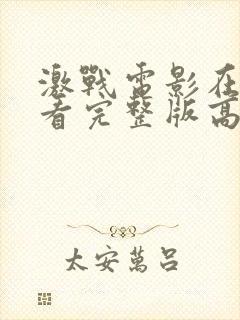 激戰电影在
看完整版高
太安萬呂